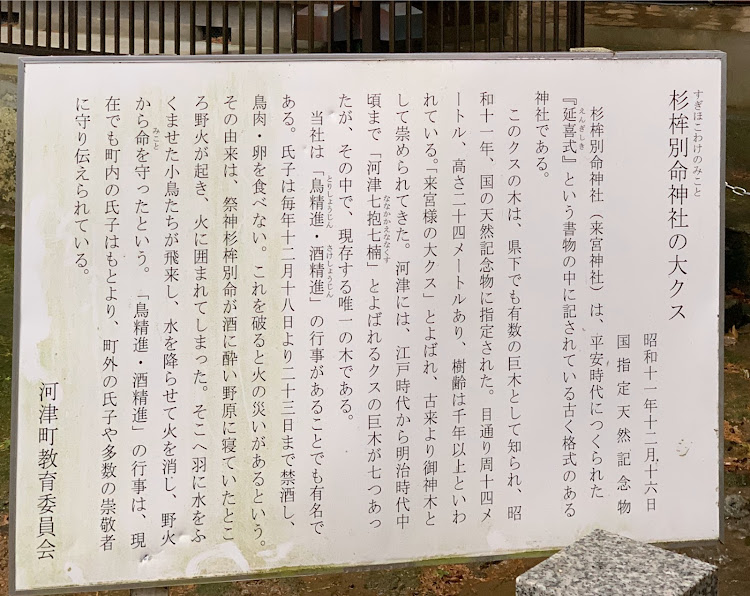 杉桙別命神社の大クス
すぎほこわけのみこと
昭和十一年十二月十六日
国指定天然記念物
杉桙別命神社（来宮神社）は、平安時代につくられた
『延喜式』という書物の中に記されている古く格式のある
えんぎしき
神社である。
このクスの木は、県下でも有数の巨木として知られ、昭
和十一年、国の天然記念物に指定された。目通り周十四メ
ートル、高さ二十四メートルあり、樹齢は千年以上といわ
れている。「来宮様の大クス」とよばれ、古来より御神木と
して崇められてきた。河津には、江戸時代から明治時代中
頃まで「河津七抱七楠」とよばれるクスの巨木が七つあっ
ななかかえななくす
たが、その中で、現存する唯一の木である。
当社は「鳥精進・酒精進」の行事があることでも有名で
とりしょうじん さけしょうじん
ある。氏子は毎年十二月十八日より二十三日まで禁酒し、
鳥肉・卵を食べない。これを破ると火の災いがあるという。
その由来は、祭神杉桙別命が酒に酔い野原に寝ていたとこ
ろ野火が起き、火に囲まれてしまった。そこへ羽に水をふ
くませた小鳥たちが飛来し、水を降らせて火を消し、野火
から命を守ったという。「鳥精進・酒精進」の行事は、現
みこと
在でも町内の氏子はもとより、町外の氏子や多数の崇敬者
に守り伝えられている。
河津町教育委員会